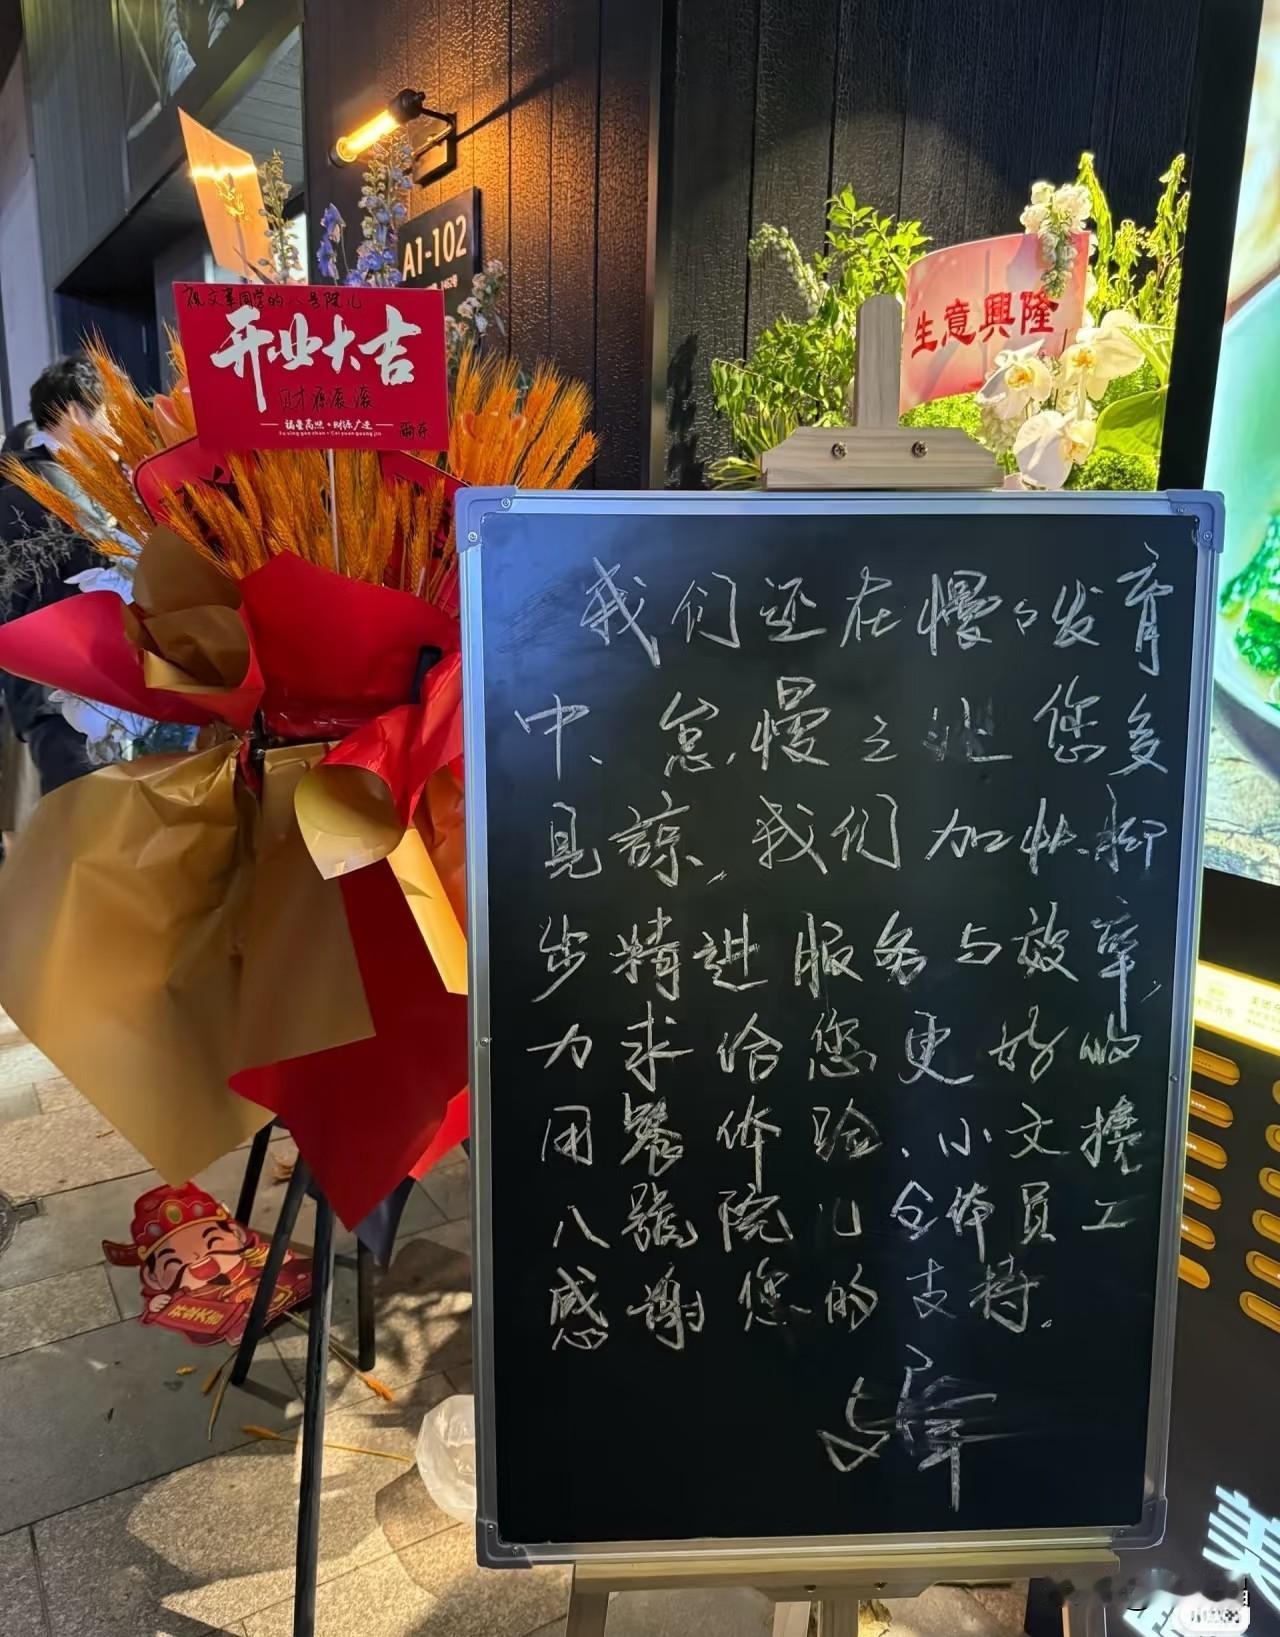 A1-102
祝文峯同学的八号院儿
开业大吉
财源滚滚
福星高照·财源广进
Fu xing gao zhao · Cai yuan guang jin
生意興隆
我们还在慢々发育
中、怠慢之处您多
見諒,我们加快脚
步精进服务与效率,
力求给您更好的
用餐体验、小文携
八號院儿全体員工
感谢您的支持.
开业大吉
美